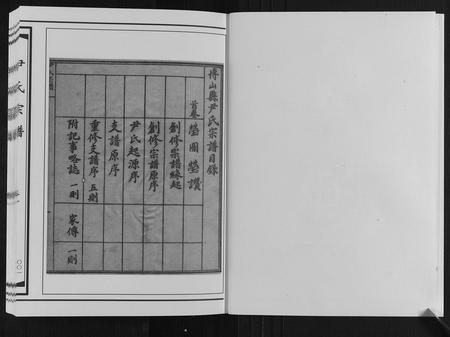 博山縣尹氏宗譜目錄
首卷 塋圖 塋讚
創修宗譜緣起
創修宗譜原序
尹氏起源序
支譜原序
重修支譜序 五則
附記事略誌 一則 家傳 一則
尹氏宗譜
一
〇〇一